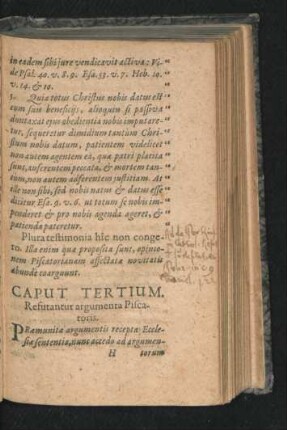 in eadem sibi jure vendicavit activa: Vi-
de Psal. 40. v. 8. 9. Esa. 53. v. 7. Heb. 10.
v. 14. & 10.
5. Quia totus Christus nobis datus est
cum suis beneficiis, alioquin si passiva
duntaxat ejus obedientia nobis imputare-
tur, sequeretur dimidium tantùm Chri-
stum nobis datum, patientem videlicet
non autem agentem ea, quæ patri placita
sunt, auferentem peccata, & mortem tan-
tum, non autem adferentem justitiam. At
ille non sibi, sed nobis natus & datus esse
dicitur Esa. 9. v. 6. ut totum se nobis im-
penderet & pro nobis agenda ageret, &
patienda pateretur.
Plura testimonia hîc non conge-
ro. Illa enim quæ proposita sunt, opinio-
nem Piscatorianam affectatæ novitatis
abunde coarguunt.
CAPUT TERTIUM.
Refutantur argumenta Pisca-
toris.
PRæmunita argumentis recepta Eccle-
siæ sententia, nunc accedo ad argumen-
H torum